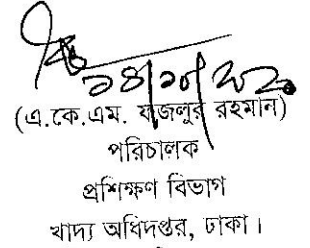 ১৪/১০/২০২০
(এ.কে.এম. ফজলুর রহমান)
পরিচালক
প্রশিক্ষণ বিভাগ
খাদ্য অধিদপ্তর, ঢাকা।